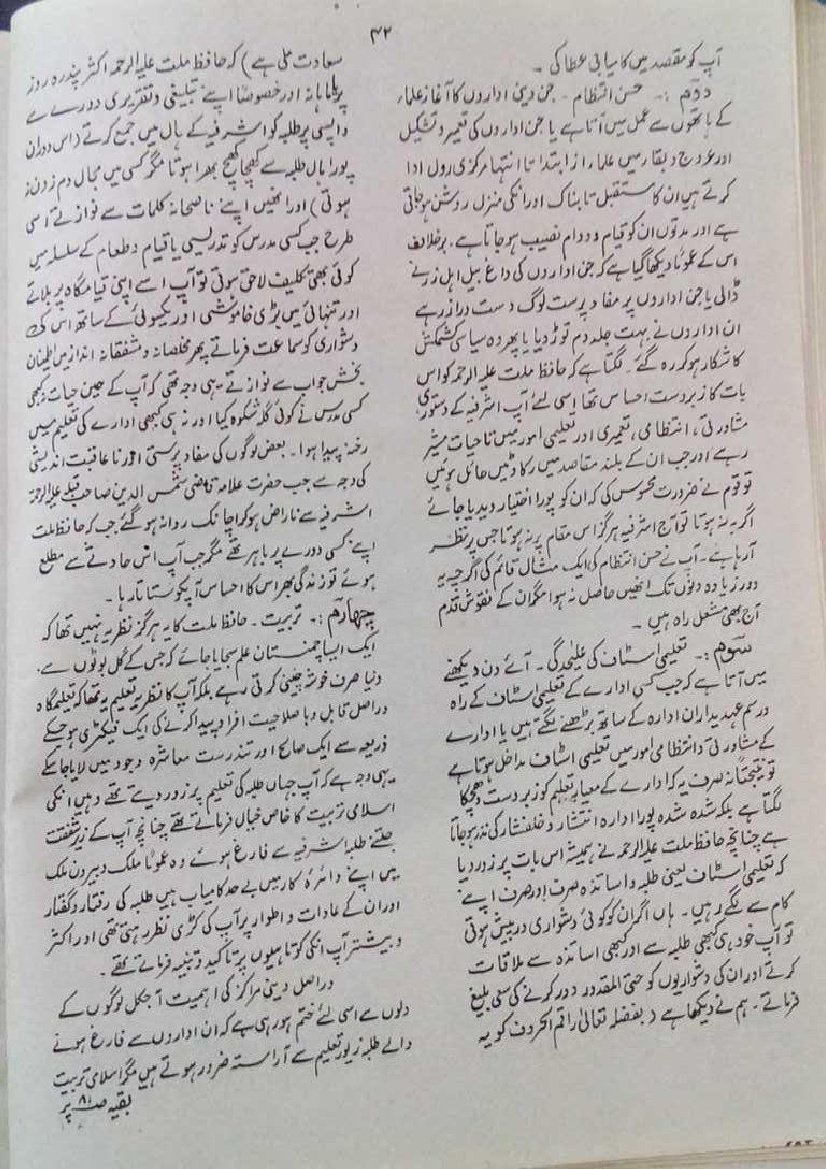 ۴۲
آپ کو مقصد میں کامیابی عطا کی ۔
دوم :۔ حسن انتظام ۔ جن دینی اداروں کا آغاز علماء
کے ہاتھوں سے عمل میں آتا ہے یا جن اداروں کی تعمیر و تشکیل
اور عروج و بقا میں علماء از ابتدا تا انتہا مرکزی رول ادا
کرتے ہیں ان کا مستقبل تابناک اور انکی منزل روشن ہو جاتی
ہے اور مدتوں ان کو قیام و دوام نصیب ہو جاتا ہے۔ برخلاف
اس کے عموماً دیکھا گیا ہے کہ جن اداروں کی داغ بیل اہل زر نے
ڈالی یا جن اداروں پر مفاد پرست لوگ دست دراز رہے
ان اداروں نے بہت جلد دم توڑ دیا یا پھر وہ سیاسی کشمکش
کا شکار ہو کر رہ گئے ۔ لگتا ہے کہ حافظ ملت علیہ الرحمہ کو اس
بات کا زبردست احساس تھا اسی لئے آپ اشرفیہ کے دستوری
مشاورتی ، انتظامی ، تعمیری اور تعلیمی امور میں تاحیات مشیر
رہے اور جب ان کے بلند مقاصد میں رکاوٹیں حائل ہوئیں
تو قوم نے ضرورت محسوس کی کہ ان کو پورا اختیار دیدیا جائے
اگر یہ نہ ہوتا تو آج اشرفیہ ہرگز اس مقام پر نہ ہوتا جس پر نظر
آرہا ہے ۔ آپ نے حسن انتظام کی ایک مثال قائم کی اگرچہ یہ
دور زیادہ دنوں تک انھیں حاصل نہ ہوا مگر ان کے نقوش قدم
آج بھی مشعل راہ ہیں ۔
سوم :۔ تعلیمی اسٹاف کی علیحدگی ۔ آئے دن دیکھنے
میں آتا ہے کہ جب کسی ادارے کے تعلیمی اسٹاف کے راہ
و رسم عہدیداران ادارہ کے ساتھ بڑھنے لگتے ہیں یا ادارے
کے مشاورتی و انتظامی امور میں تعلیمی اسٹاف مداخل ہوتا ہے
تو نتیجتاً نہ صرف یہ کہ ادارے کے معیار تعلیم کو زبردست دھچکا
لگتا ہے بلکہ شدہ شدہ پورا ادارہ انتشار و خلفشار کی نذر ہو جاتا
ہے چنانچہ حافظ ملت علیہ الرحمہ نے ہمیشہ اس بات پر زور دیا
کہ تعلیمی اسٹاف یعنی طلبہ و اساتذہ صرف اور صرف اپنے
کام سے لگے رہیں ۔ ہاں اگر ان کو کوئی دشواری درپیش ہوتی
تو آپ خود ہی کبھی طلبہ سے اور کبھی اساتذہ سے ملاقات
کرتے اور ان کی دشواریوں کو حتی المقدور دور کرنے کی سعی بلیغ
فرماتے ۔ ہم نے دیکھا ہے ( بفضلہ تعالیٰ راقم الحروف کو یہ
سعادت ملی ہے ) کہ حافظ ملت علیہ الرحمہ اکثر پندرہ روز
پر یا ماہانہ اور خصوصاً اپنے تبلیغی و تقریری دورے سے
واپسی پر طلبہ کو اشرفیہ کے ہال میں جمع کرتے ( اس دوران
پورا ہال طلبہ سے کھچا کھچ بھرا ہوتا مگر کسی میں مجال دم زدن نہ
ہوتی ) اور انھیں اپنے ناصحانہ کلمات سے نوازتے اسی
طرح جب کسی مدرس کو تدریسی یا قیام و طعام کے سلسلہ میں
کوئی بھی تکلیف لاحق ہوتی تو آپ اسے اپنی قیام گاہ پر بلاتے
اور تنہائی میں بڑی خاموشی اور یکسوئی کے ساتھ اس کی
دشواری کو سماعت فرماتے پھر مخلصانہ و مشفقانہ انداز میں اطمینان
بخش جواب سے نوازتے ۔ یہی وجہ تھی کہ آپ کے حین حیات نہ کبھی
کسی مدرس نے کوئی گلہ شکوہ کیا اور نہ ہی کبھی ادارے کی تعلیم میں
رخنہ پیدا ہوا ۔ بعض لوگوں کی مفاد پرستی اور ناعاقبت اندیشی
کی وجہ سے جب حضرت علامہ قاضی شمس الدین صاحب قبلہ علیہ الرحمۃ
اشرفیہ سے ناراض ہو کر اچانک روانہ ہو گئے جب کہ حافظ ملت
اپنے کسی دورے پر باہر تھے مگر جب آپ اس حادثے سے مطلع
ہوئے تو زندگی بھر اس کا احساس آپ کو ستاتا رہا ۔
چہارم :۔ تربیت ۔ حافظ ملت کا یہ ہرگز نظریہ نہیں تھا کہ
ایک ایسا چمنستان علم سجایا جائے کہ جس کے گل بوٹوں سے
دنیا صرف خوشہ چینی کرتی رہے بلکہ آپ کا نظریہ تعلیم یہ تھا کہ تعلیمگاہ
دراصل قابل و باصلاحیت افراد پیدا کرنے کی ایک فیکٹری ہو جسکے
ذریعہ سے ایک صالح اور تندرست معاشرہ وجود میں لایا جا سکے
یہی وجہ ہے کہ آپ جہاں طلبہ کی تعلیم پر زور دیتے تھے وہیں انکی
اسلامی تربیت کا خاص خیال فرماتے تھے چنانچہ آپ کے زیر شفقت
جتنے طلبہ اشرفیہ سے فارغ ہوئے وہ عموماً ملک و بیرون ملک
میں اپنے دائرۂ کار میں بے حد کامیاب ہیں طلبہ کی رفتار و گفتار
اور ان کے عادات و اطوار پر آپ کی کڑی نظر رہتی تھی اور اکثر
و بیشتر آپ انکی کوتاہیوں پر تاکید و تنبیہ فرماتے تھے ۔
دراصل دینی مراکز کی اہمیت آجکل لوگوں کے
دلوں سے اسی لئے ختم ہو رہی ہے کہ ان اداروں سے فارغ ہونے
والے طلبہ زیور تعلیم سے آراستہ ضرور ہوتے ہیں مگر اسلامی تربیت
بقیہ صہ ۸۱ پر